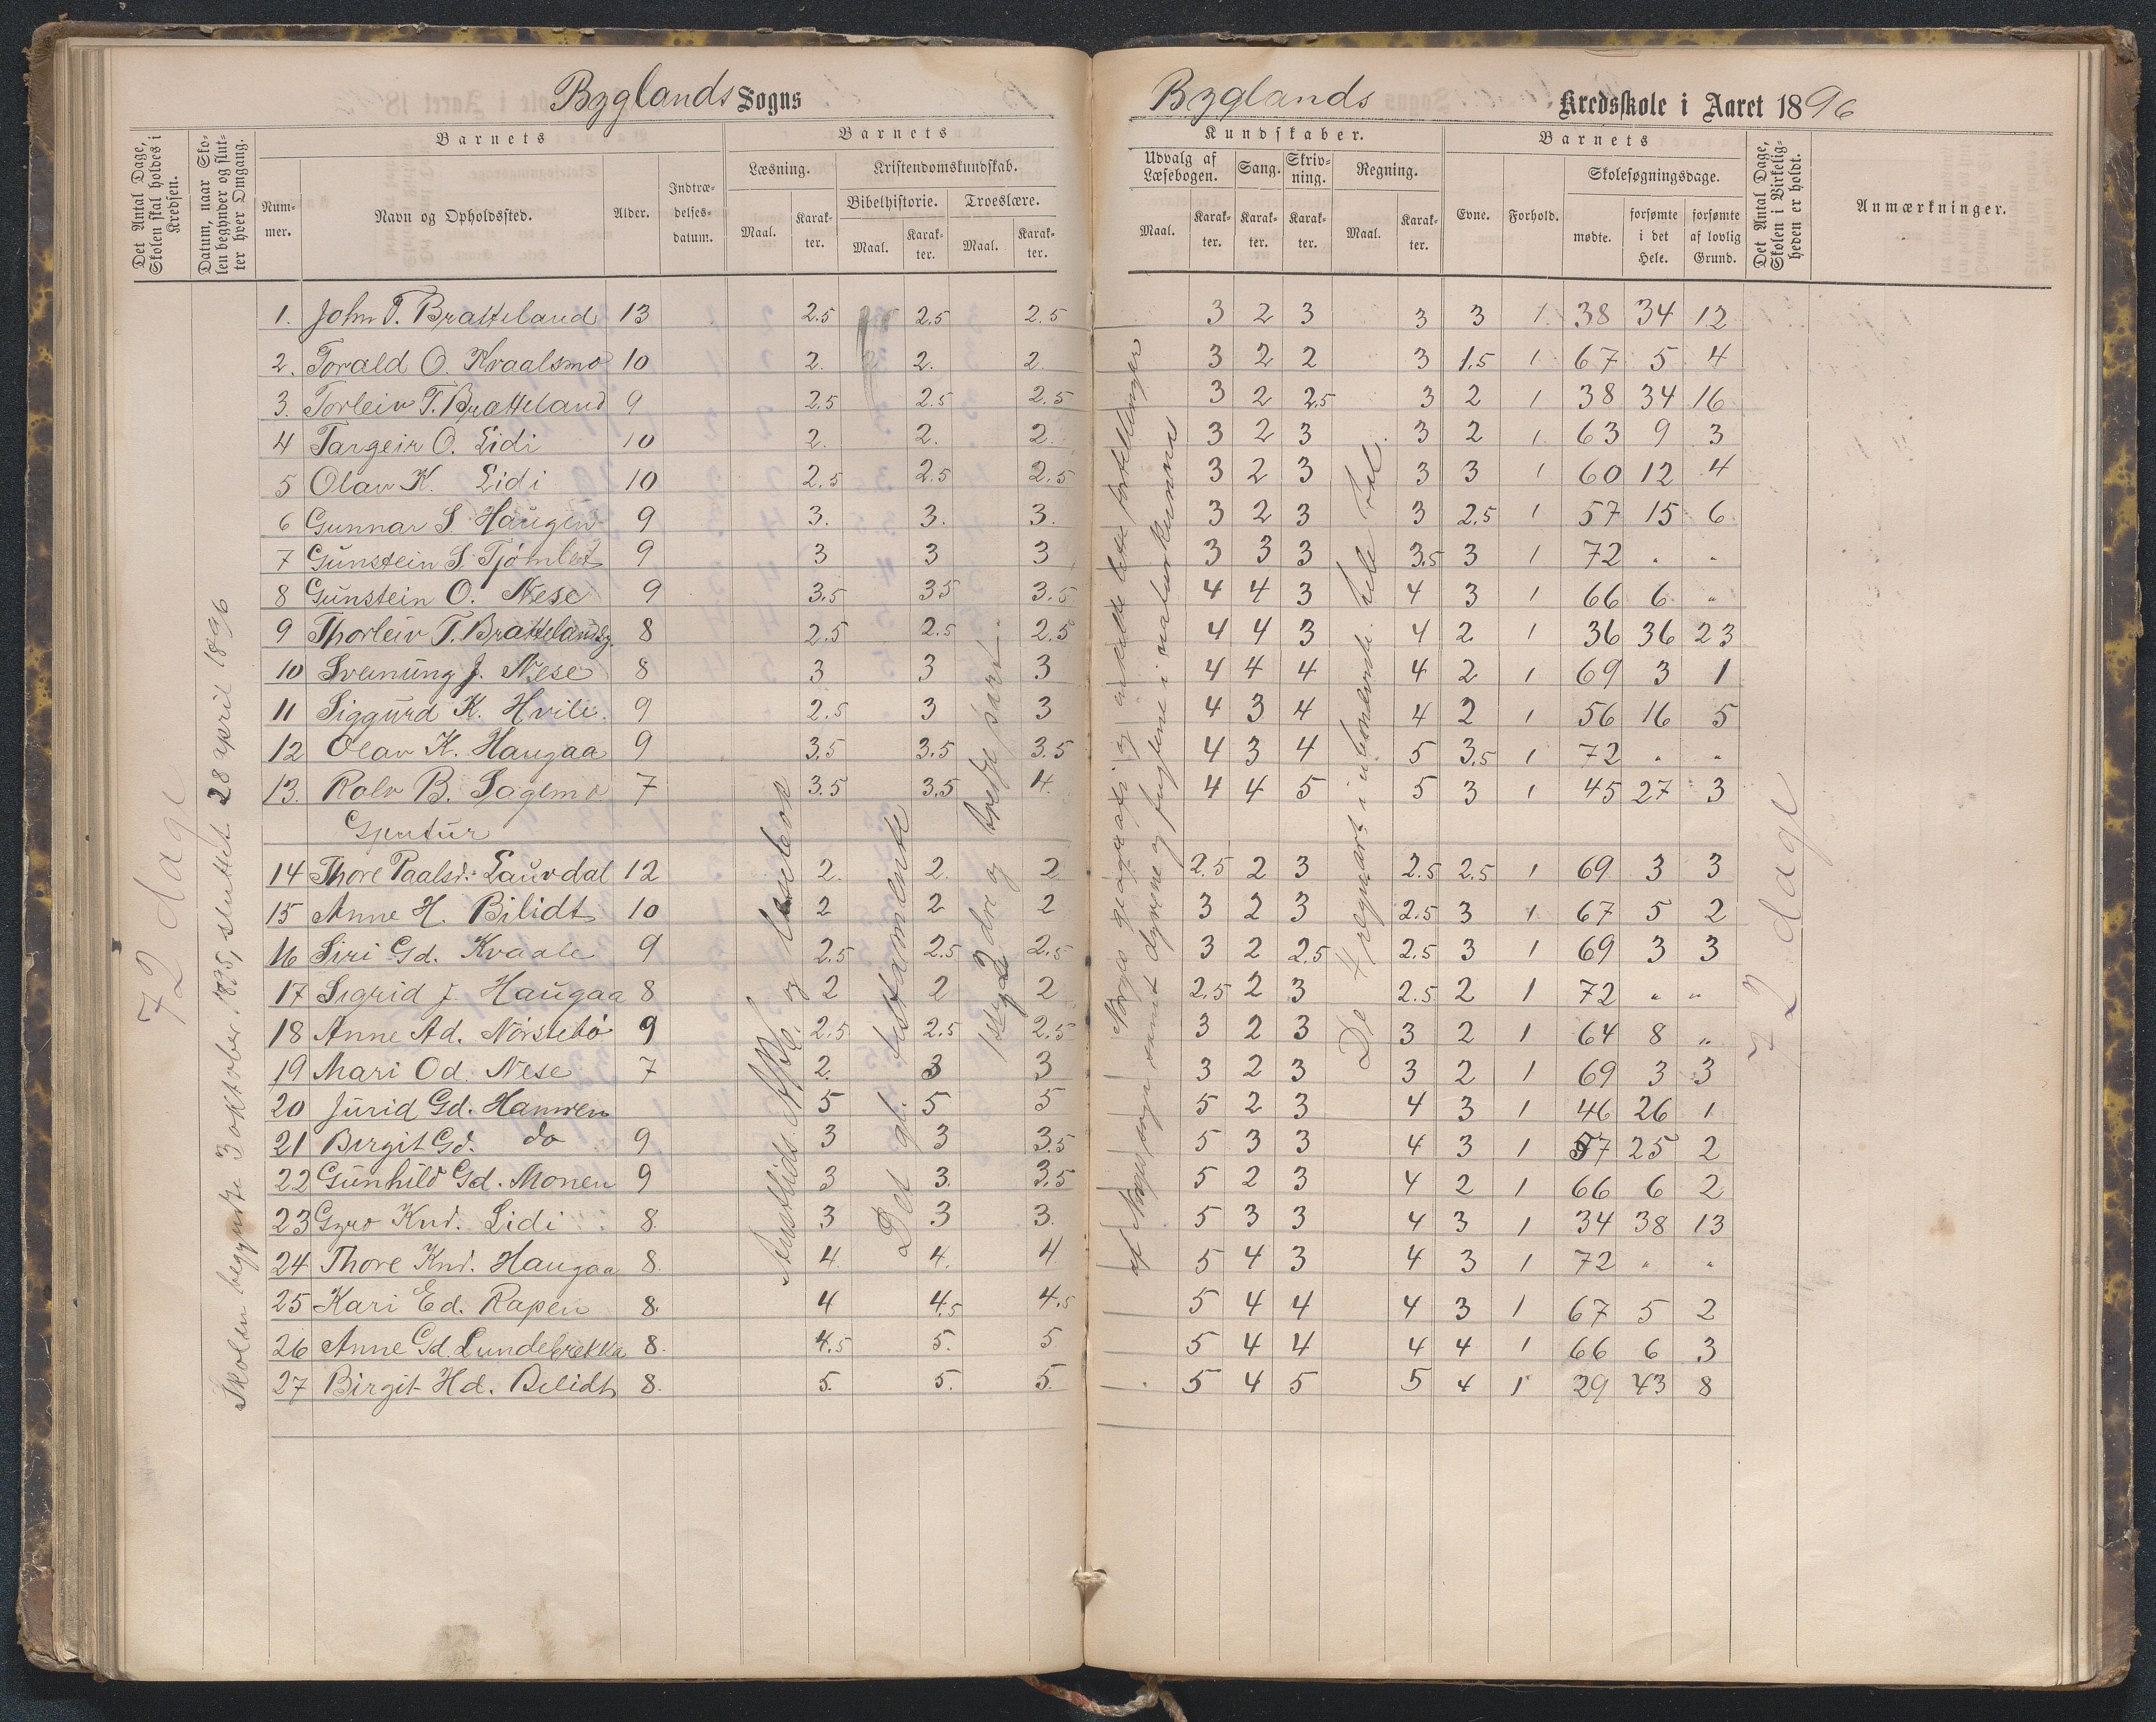 Byglands Sogns
Det Antal Dage, Skolen skal holdes i Kredsen.
Datum, naar Skolen begynder og slutter hver Omgang.
Barnets
Nummer.
Navn og Opholdssted.
Alder.
Indtrædelsesdatum.
Barnets
Læsning.
Maal.
Karakter.
Kristendomskundskab.
Bibelhistorie.
Maal.
Karakter.
Troeslære.
Maal.
Karakter.
72 dage
Skolen begyndte 3 oktober 1895, sluttet 28 april 1896
og læsebok
Det gl. testamente
1ste, 2dre og tredje part
1. John T. Bratteland 13 2.5 2.5 2.5
2. Torald O. Kvaalsmo 10 2. 2. 2
3. Torleiv T. Bratteland 9 2.5 2.5 2.5
4 Targeir O. Lidi 10 2. 2. 2.
5 Olav K. Lidi 10 2.5 2.5 2.5
6 Gunnar S. Haugen 9 3. 3. 3.
7 Gunstein S. 9 3 3 3
8 Gunstein O. Nese 9 3.5 35 3.5
9 Thorleiv T. 8 2.5 2.5 2.5
10 Sveinung J. Nese 8 3 3 3
11 Siggurd K. Hvili. 9 2.5 3 3
12 Olav K. Haugaa 9 3.5 3.5 3.5
13. Rolv B. Sagemo 7 3.5 3.5 4.
Gjentur
14 Thore Paalsd. Lauvdal 12 2. 2. 2
15 Anne H. Bilidt 10 2 2 2
16 Siri Gd. Kvaale 9 2.5 2.5 2.5
17 Sigrid J. Haugaa 8 2 2 2
18 Anne Ad. Nörstebö 9 2.5 2.5 2.5
19 Mari Od. Nese 7 2. 3 3
20 Jurid Gd. 5 5 5
21 Birgit Gd. do 9 3 3 3.5
22 Gunhild Gd. Monen 9 3 3. 3.5
23 Gyro Knd. Lidi 8. 3 3 3.
24 Thore Knd. Haugaa 8. 4. 4. 4
25 Kari Ed. Rapen 8. 4 4.5 4.5
26 Anne Gd. Lundebrekka 8. 4.5 5. 5
27 Birgit Hd. Bilidt 8. 5. 5. 5.
Byglands Kredsskole i Aaret 1896
Kundskaber.
Udvalg af Læsebogen.
Maal.
Karakter.
Sang.
Karakter.
Skrivning.
Karakter.
Regning.
Maal.
Karakter.
Barnets
Evne.
Forhold.
Skolesøgningsdage.
mødte.
forsømte i det Hele.
forsømte af lovlig Grund.
Det Antal Dage, Skolen i Virkeligheden er holdt.
Anmærkninger.
Norges geografi og enkelte lette fortellinger
af Norges soga samt dyrene og fuglene i naturkunna
De 4 regnearter i ubenevnte hele tal
72 dage
3 2 3 3 3 1 38 34 12
3 2 2 3 1.5 1 67 5 4
3 2 2.5 3 2 1 38 34 16
3 2 3 3 2 1 63 9 3
3 2 3 3 3 1 60 12 4
3 2 3 3 2.5 1 57 15 6
3 3 3 3.5 3 1 72 " "
4 4 3 4 3 1 66 6 "
4 4 3 4 2 1 36 36 23
4 4 4 4 2 1 69 3 1
4 3 4 4 2 1 56 16 5
4 3 4 5 3.5 1 72 " "
4 4 5 5 3 1 45 27 3
2.5 2 3 2.5 2.5 1 69 3 3
3 2 3 2.5 3 1 67 5 2
3 2 2.5 2.5 3 1 69 3 3
2.5 2 3 2.5 2 1 72 " "
3 2 3 3 2 1 64 8 "
3 2 3 3 2 1 69 3 3
5 2 3 4 3 1 46 26 1
5 3 3 4 3 1 25 2
5 2 3 4 2 1 66 6 2
5 3 3 4 3 1 34 38 13
5 4 3 4 3 1 72 " "
5 4 4 4 3 1 67 5 2
5 4 4 4 4 1 66 6 3
5 4 5 5 4 1 29 43 8